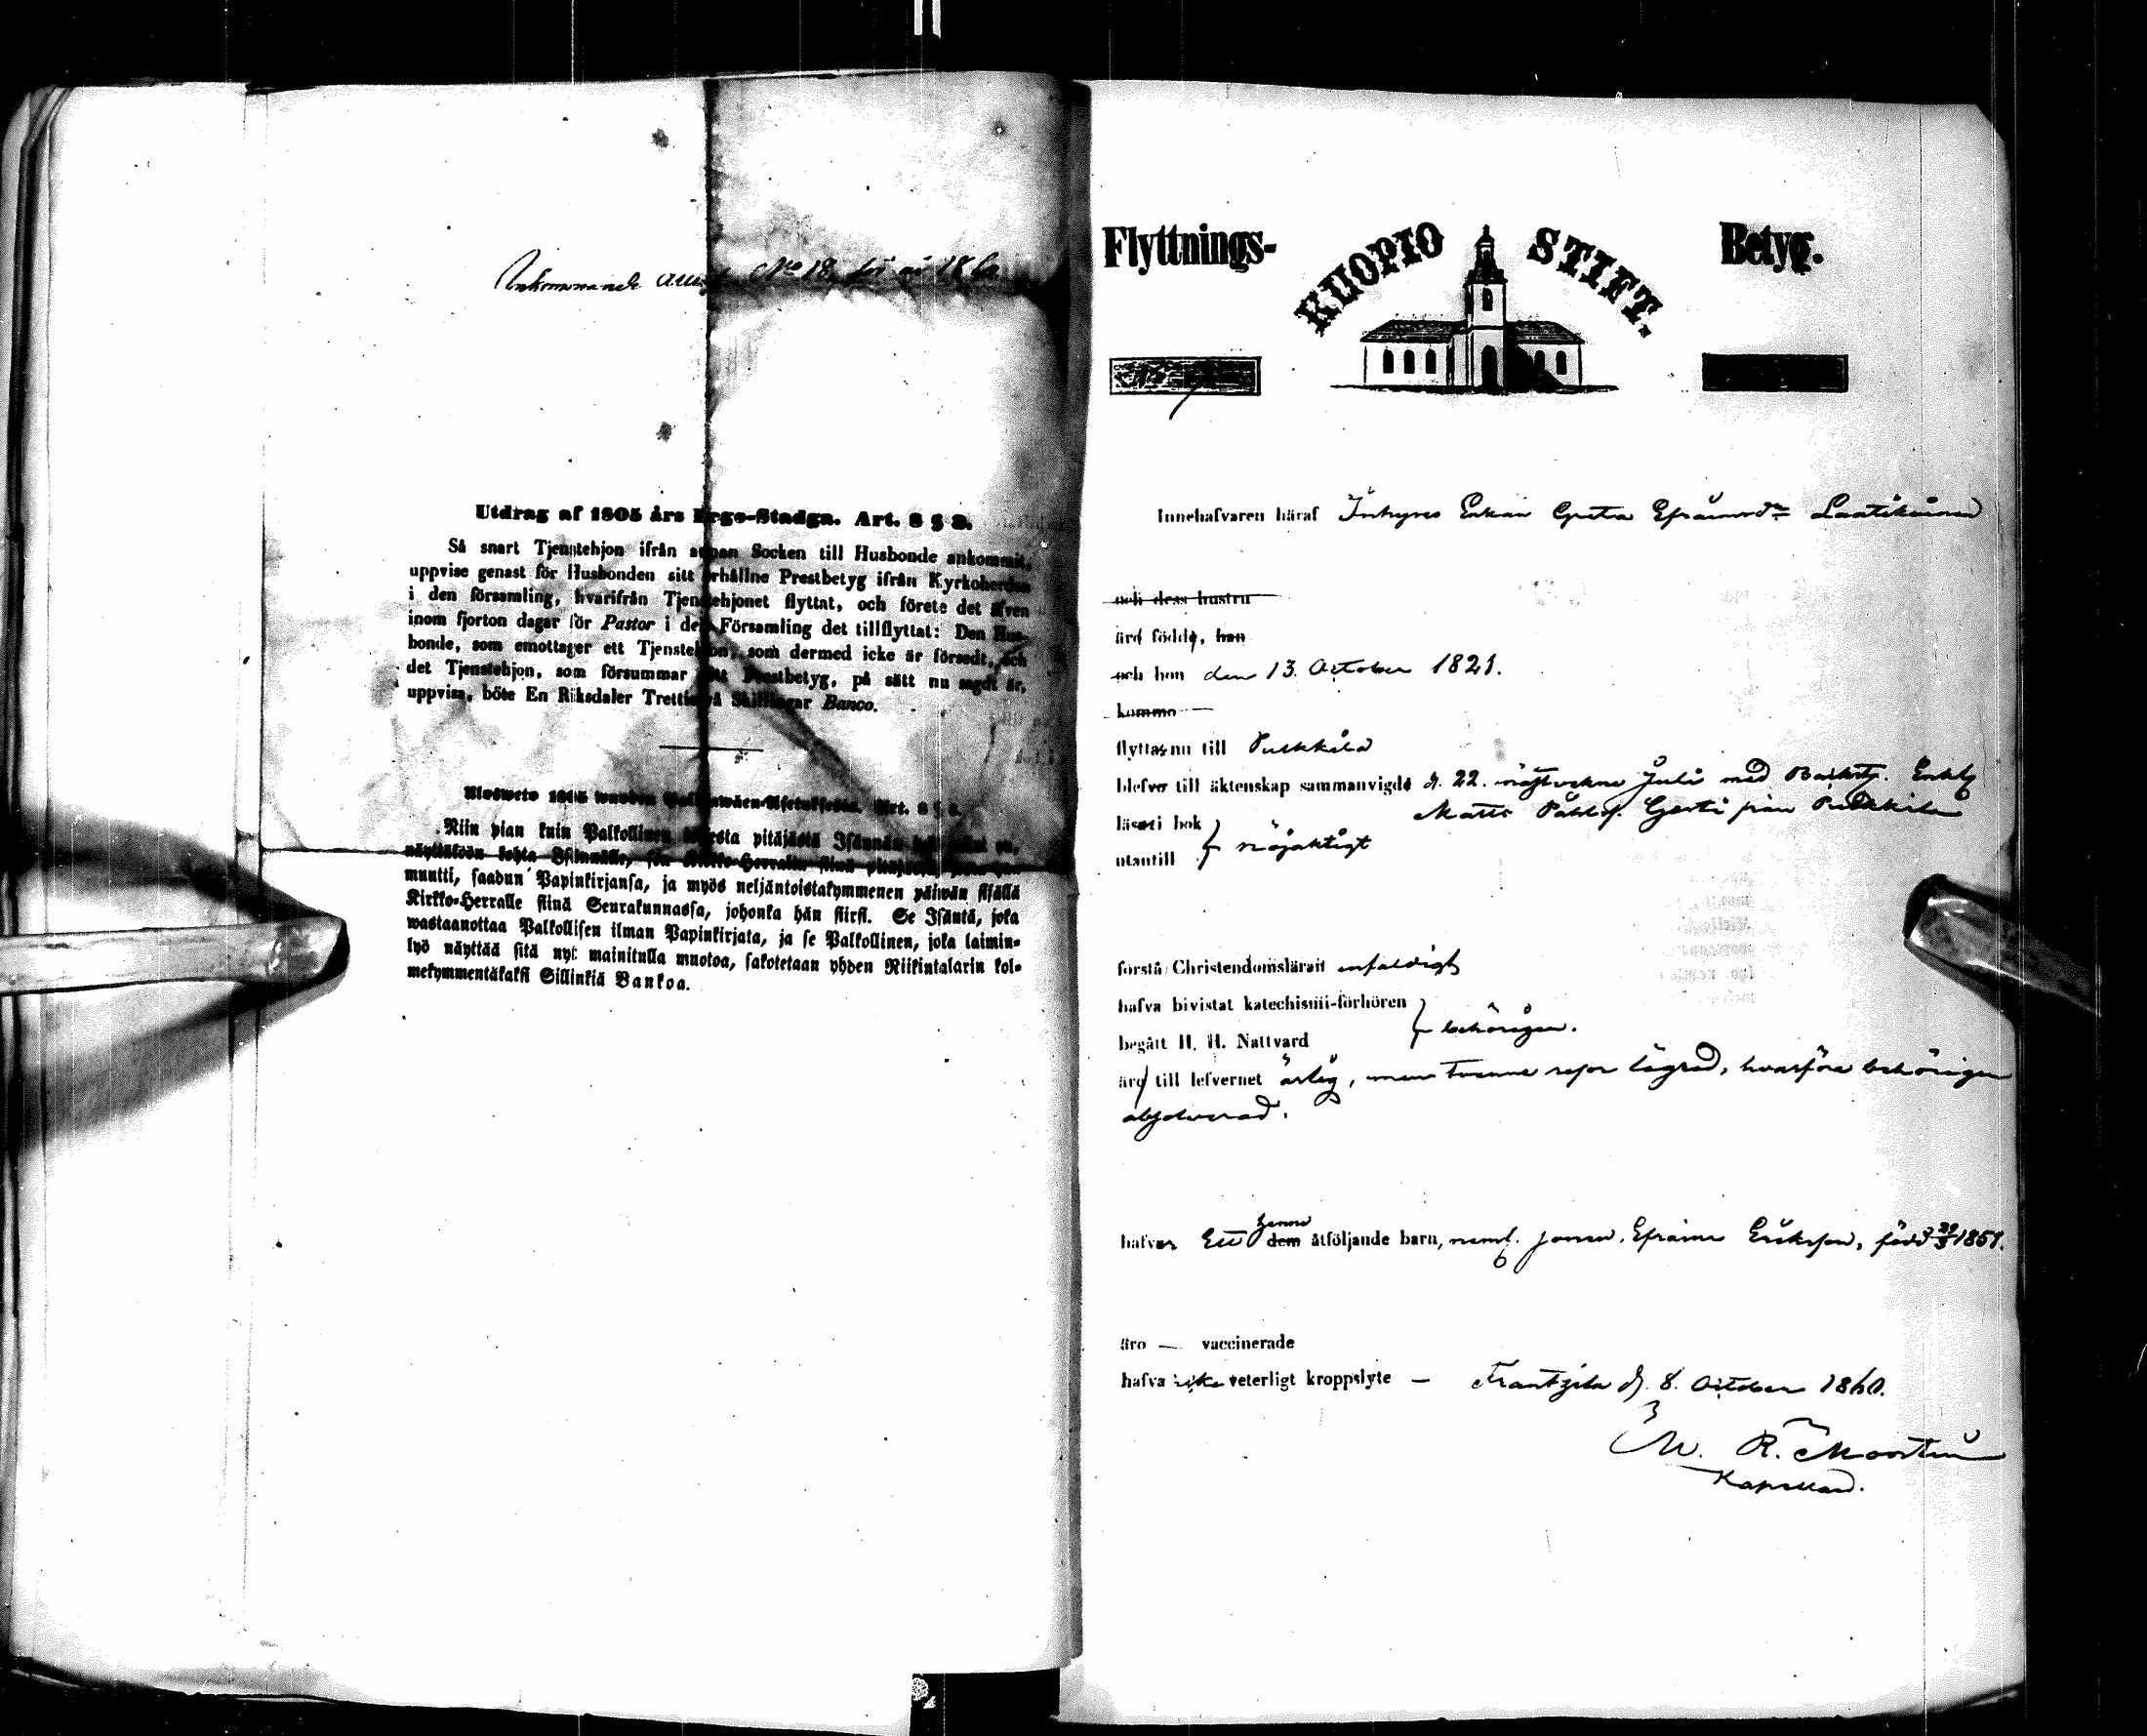 Inkommande attest No 18 för år 1860
Utdrag af 1805 års Lego-Stadga. Art. 8 § 2.
Så snart Tjenstehjon ifrån annan Socken till Husbonde ankommit,
uppvise genast för Husbonden sitt erhållne Prestbetyg ifrån Kyrkoherden
i den församling, hvarifrån Tjenstehjonet flyttat, och förete det äfven
inom fjorton dagar för Pastor i den Församling det tillflyttat: Den Hus-
bonde, som emottager ett Tjenstehjon, som dermed icke är försedt, och
det Tjenstehjon, som försummar att Prestbetyg, på sätt nu sagdt är,
uppvisa, böte En Riksdaler Trettiotvå Skillingar Banco.
Ulosweto 1805 wuoden Palkkawäen-Asetuksesta. Art. 8 § 2.
Niin pian kuin Palkollinen toisesta pitäjästä Isännän
näyttäköön kohta Isännälle, sen Kirkko-Herralta siinä
muutti, saadun Papinkirjansa, ja myös neljäntoistakymmenen päiwän sisällä
Kirkko-Herralle siinä Seurakunnassa, johonka hän siirsi. Se Isäntä, joka
wastaanottaa Palkollisen ilman Papinkirjata, ja se Palkollinen, joka laimin-
lyö näyttää sitä nyt mainitulla muotoa, sakotetaan yhden Riikintalarin kol-
mekymmentäkaksi Sillinkiä Bankoa.
Flyttnings- KUOPIO STIFT. Betyg.
Innehafvaren häraf Inhyses Enkan Greta Efraimsdr Laatikainen
och dess hustru
äro födde, han
och hon den 13. October 1821.
komme
flytta nu till Pulkkila
blefvo till äktenskap sammanvigde d. 22. nästvekne Juli med Enkl.
Matts från Pulkkila
läsa i bok
utantill } nöjaktigt
förstå Christendomsläran enfaldigt
hafva bivistat katechismi-förhören
begått H. H. Nattvard } behörigen.
äro till lefvernet ärlig, men tvenne resor lägrad, hvarföre behörigen
absolverad.
hafva Ett henne dem åtföljande barn, neml. sonen Efraim Eriksson, född 1851.
äro — vaccinerade
hafva icke veterligt kroppslyte — Frantzila d. 8. October 1860.
Kapellan.